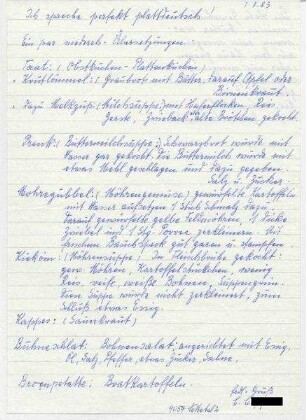 Ich spreche perfekt plattdeutsch!
Ein paar niederrh. Übersetzungen.
Taat: (Obstkuchen - Plattenkuchen)
: Graubrot mit Butter, darauf Äpfel oder
Birnenkraut.
Dazu (Milchsuppe) mit Haferflocken, Reis
Gerste, Zwieback, alte Brötchen gekocht.
(Buttermilchsuppe) Schwarzbrot würde mit
Wasser gar gekocht. Die Buttermilch würde mit
etwas Mehl geschlagen und dazu gegeben.
Salz u. Zucker.
(Möhrengemüse) gewürfelte Kartoffeln
mit Wasser aufsetzen 1 Stück Schmalz dazu,
darauf gewürfelte gelbe Möhren, 1 dicke
Zwiebel und 1 Stg. Porree zerkleinern. Mit
Bauchspeck gut garen u. stampfen
(Möhrensuppe) In Fleischbrühe gekocht
gew. Möhren, Kartoffelstückchen, wenig
Reis, weiße Bohnen, Suppengrün.
Die Suppe würde nicht zerkleinert, zum
Schluß etwas Essig.
Kappes: (Sauerkraut)
Bohnensalat: angerichtet mit Essig,
Öl, Salz, Pfeffer, etwas Zucker, Sahne.
Bratkartoffeln.
Gruß
E.